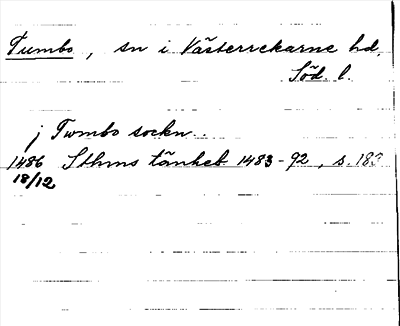 Tumbo, sn i Västerrekarne hd.
Söd. l.
j Tumbo sockn..
1486 Sthms tänkeb 1483-92, s. 183
18/12